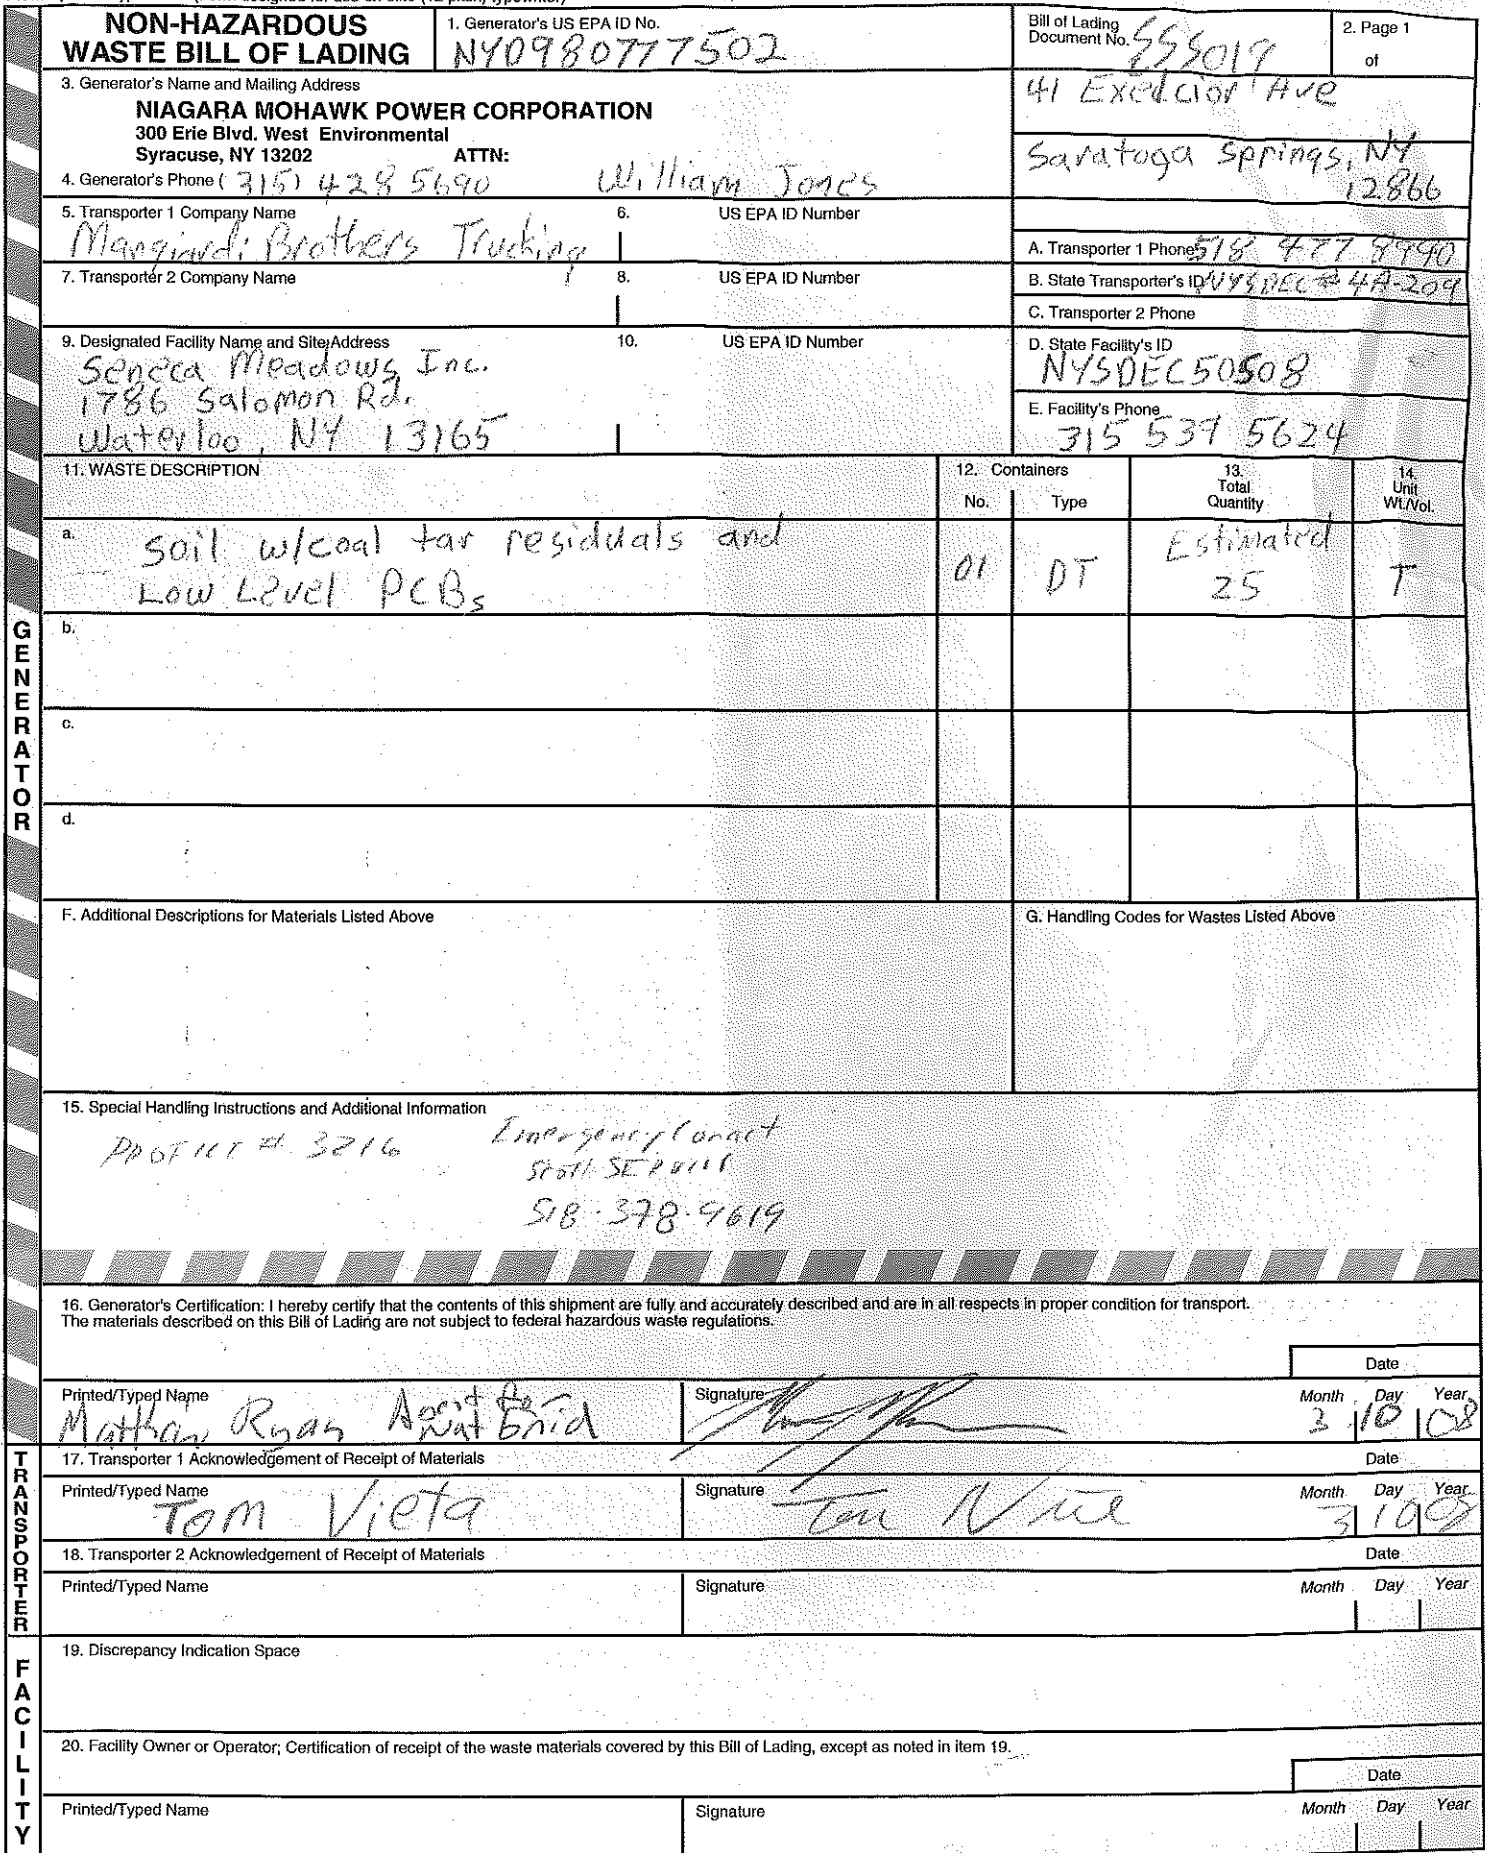 NON-HAZARDOUS
WASTE BILL OF LADING
1. Generator's US EPA ID No.
NYD980777502
Bill of Lading
Document No. SSS019
2. Page 1
of
3. Generator's Name and Mailing Address
NIAGARA MOHAWK POWER CORPORATION
300 Erie Blvd. West Environmental
Syracuse, NY 13202 ATTN:
4. Generator's Phone ( 315) 428 5690 William Jones
41 Exedcior Ave
Saratoga Springs, NY
12866
5. Transporter 1 Company Name
Mangiardi Brothers Trucking
6. US EPA ID Number
A. Transporter 1 Phone 518 477 8990
7. Transporter 2 Company Name
8. US EPA ID Number
B. State Transporter's ID NYSDEC # 4A-209
C. Transporter 2 Phone
9. Designated Facility Name and Site Address
Seneca Meadows Inc.
1786 Salomon Rd.
Waterloo, NY 13165
10. US EPA ID Number
D. State Facility's ID
NYSDEC50508
E. Facility's Phone
315 539 5624
11. WASTE DESCRIPTION
12. Containers
No. Type
13.
Total
Quantity
14.
Unit
Wt./Vol.
a. Soil w/coal tar residuals and
Low Level PCBs
01 DT Estimated
25 T
b.
c.
d.
F. Additional Descriptions for Materials Listed Above
G. Handling Codes for Wastes Listed Above
15. Special Handling Instructions and Additional Information
# 3216
Emergency Conact
518-378-9619
16. Generator's Certification: I hereby certify that the contents of this shipment are fully and accurately described and are in all respects in proper condition for transport.
The materials described on this Bill of Lading are not subject to federal hazardous waste regulations.
Date
Printed/Typed Name
Ryan Agent for
Nat Grid
Signature
Month Day Year
3 10 08
17. Transporter 1 Acknowledgement of Receipt of Materials
Date
Printed/Typed Name
Tom Vieta
Signature
Month Day Year
3 10 08
18. Transporter 2 Acknowledgement of Receipt of Materials
Date
Printed/Typed Name
Signature
Month Day Year
19. Discrepancy Indication Space
20. Facility Owner or Operator; Certification of receipt of the waste materials covered by this Bill of Lading, except as noted in item 19.
Date
Printed/Typed Name
Signature
Month Day Year
GENERATOR
TRANSPORTER
FACILITY